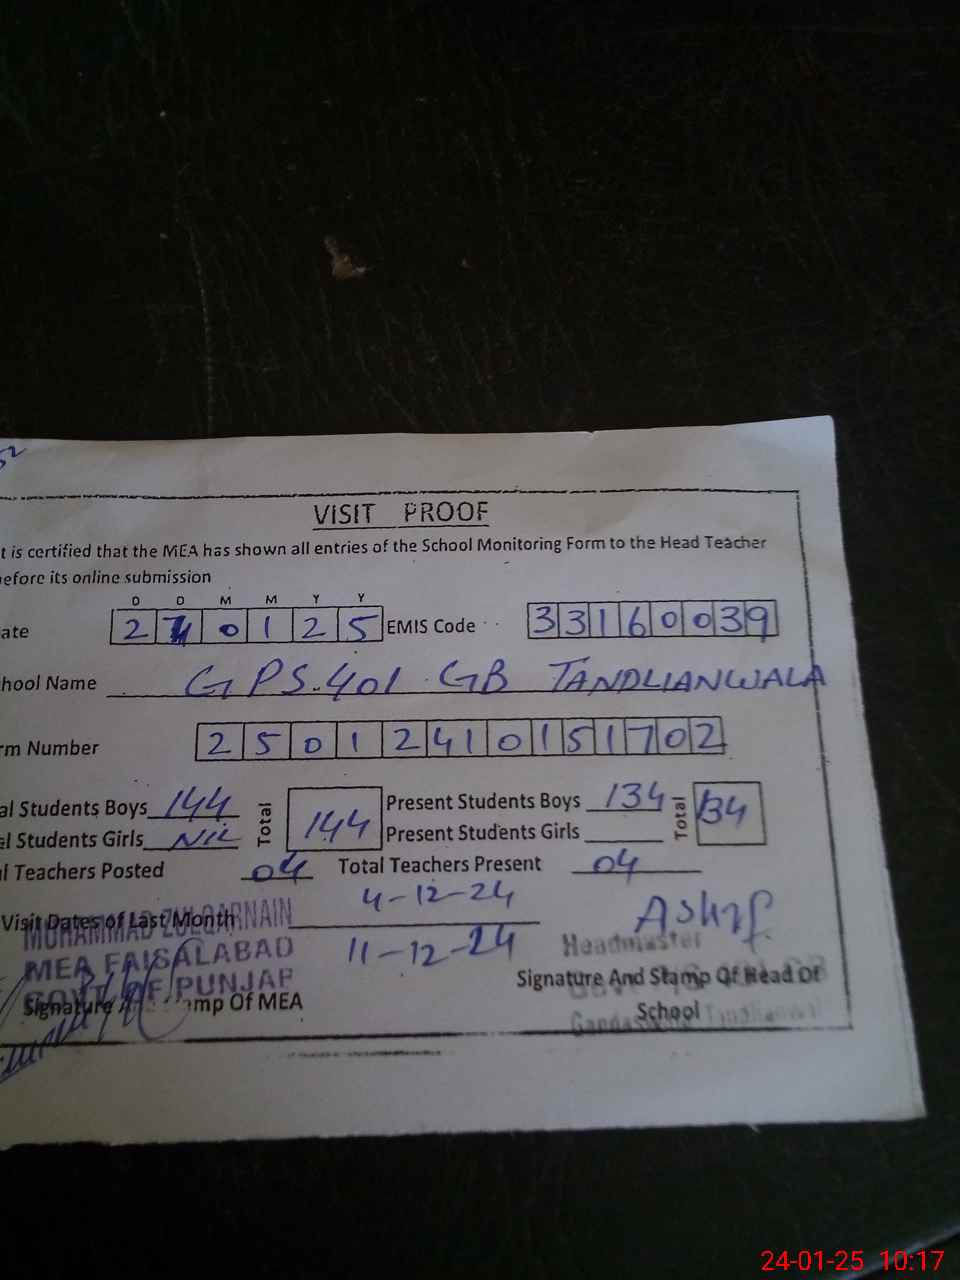 52
VISIT PROOF
t is certified that the MEA has shown all entries of the School Monitoring Form to the Head Teacher
efore its online submission
D D M M Y Y
ate 2 4 0 1 2 5 EMIS Code 3 3 1 6 0 0 3 9
hool Name GPS.401 GB TANDLIANWALA
rm Number 2 5 0 1 2 4 1 0 1 5 1 7 0 2
al Students Boys 144 Total 144 Present Students Boys 134 Total 134
al Students Girls NIL Present Students Girls
l Teachers Posted 04 Total Teachers Present 04
Visit Dates of Last Month 4-12-24
11-12-24
MUHAMMAD ZULQARNAIN
MEA FAISALABAD
GOVT OF PUNJAB
Signature And Stamp Of MEA
Ashrf
Headmaster
Signature And Stamp Of Head Of
School
24-01-25 10:17